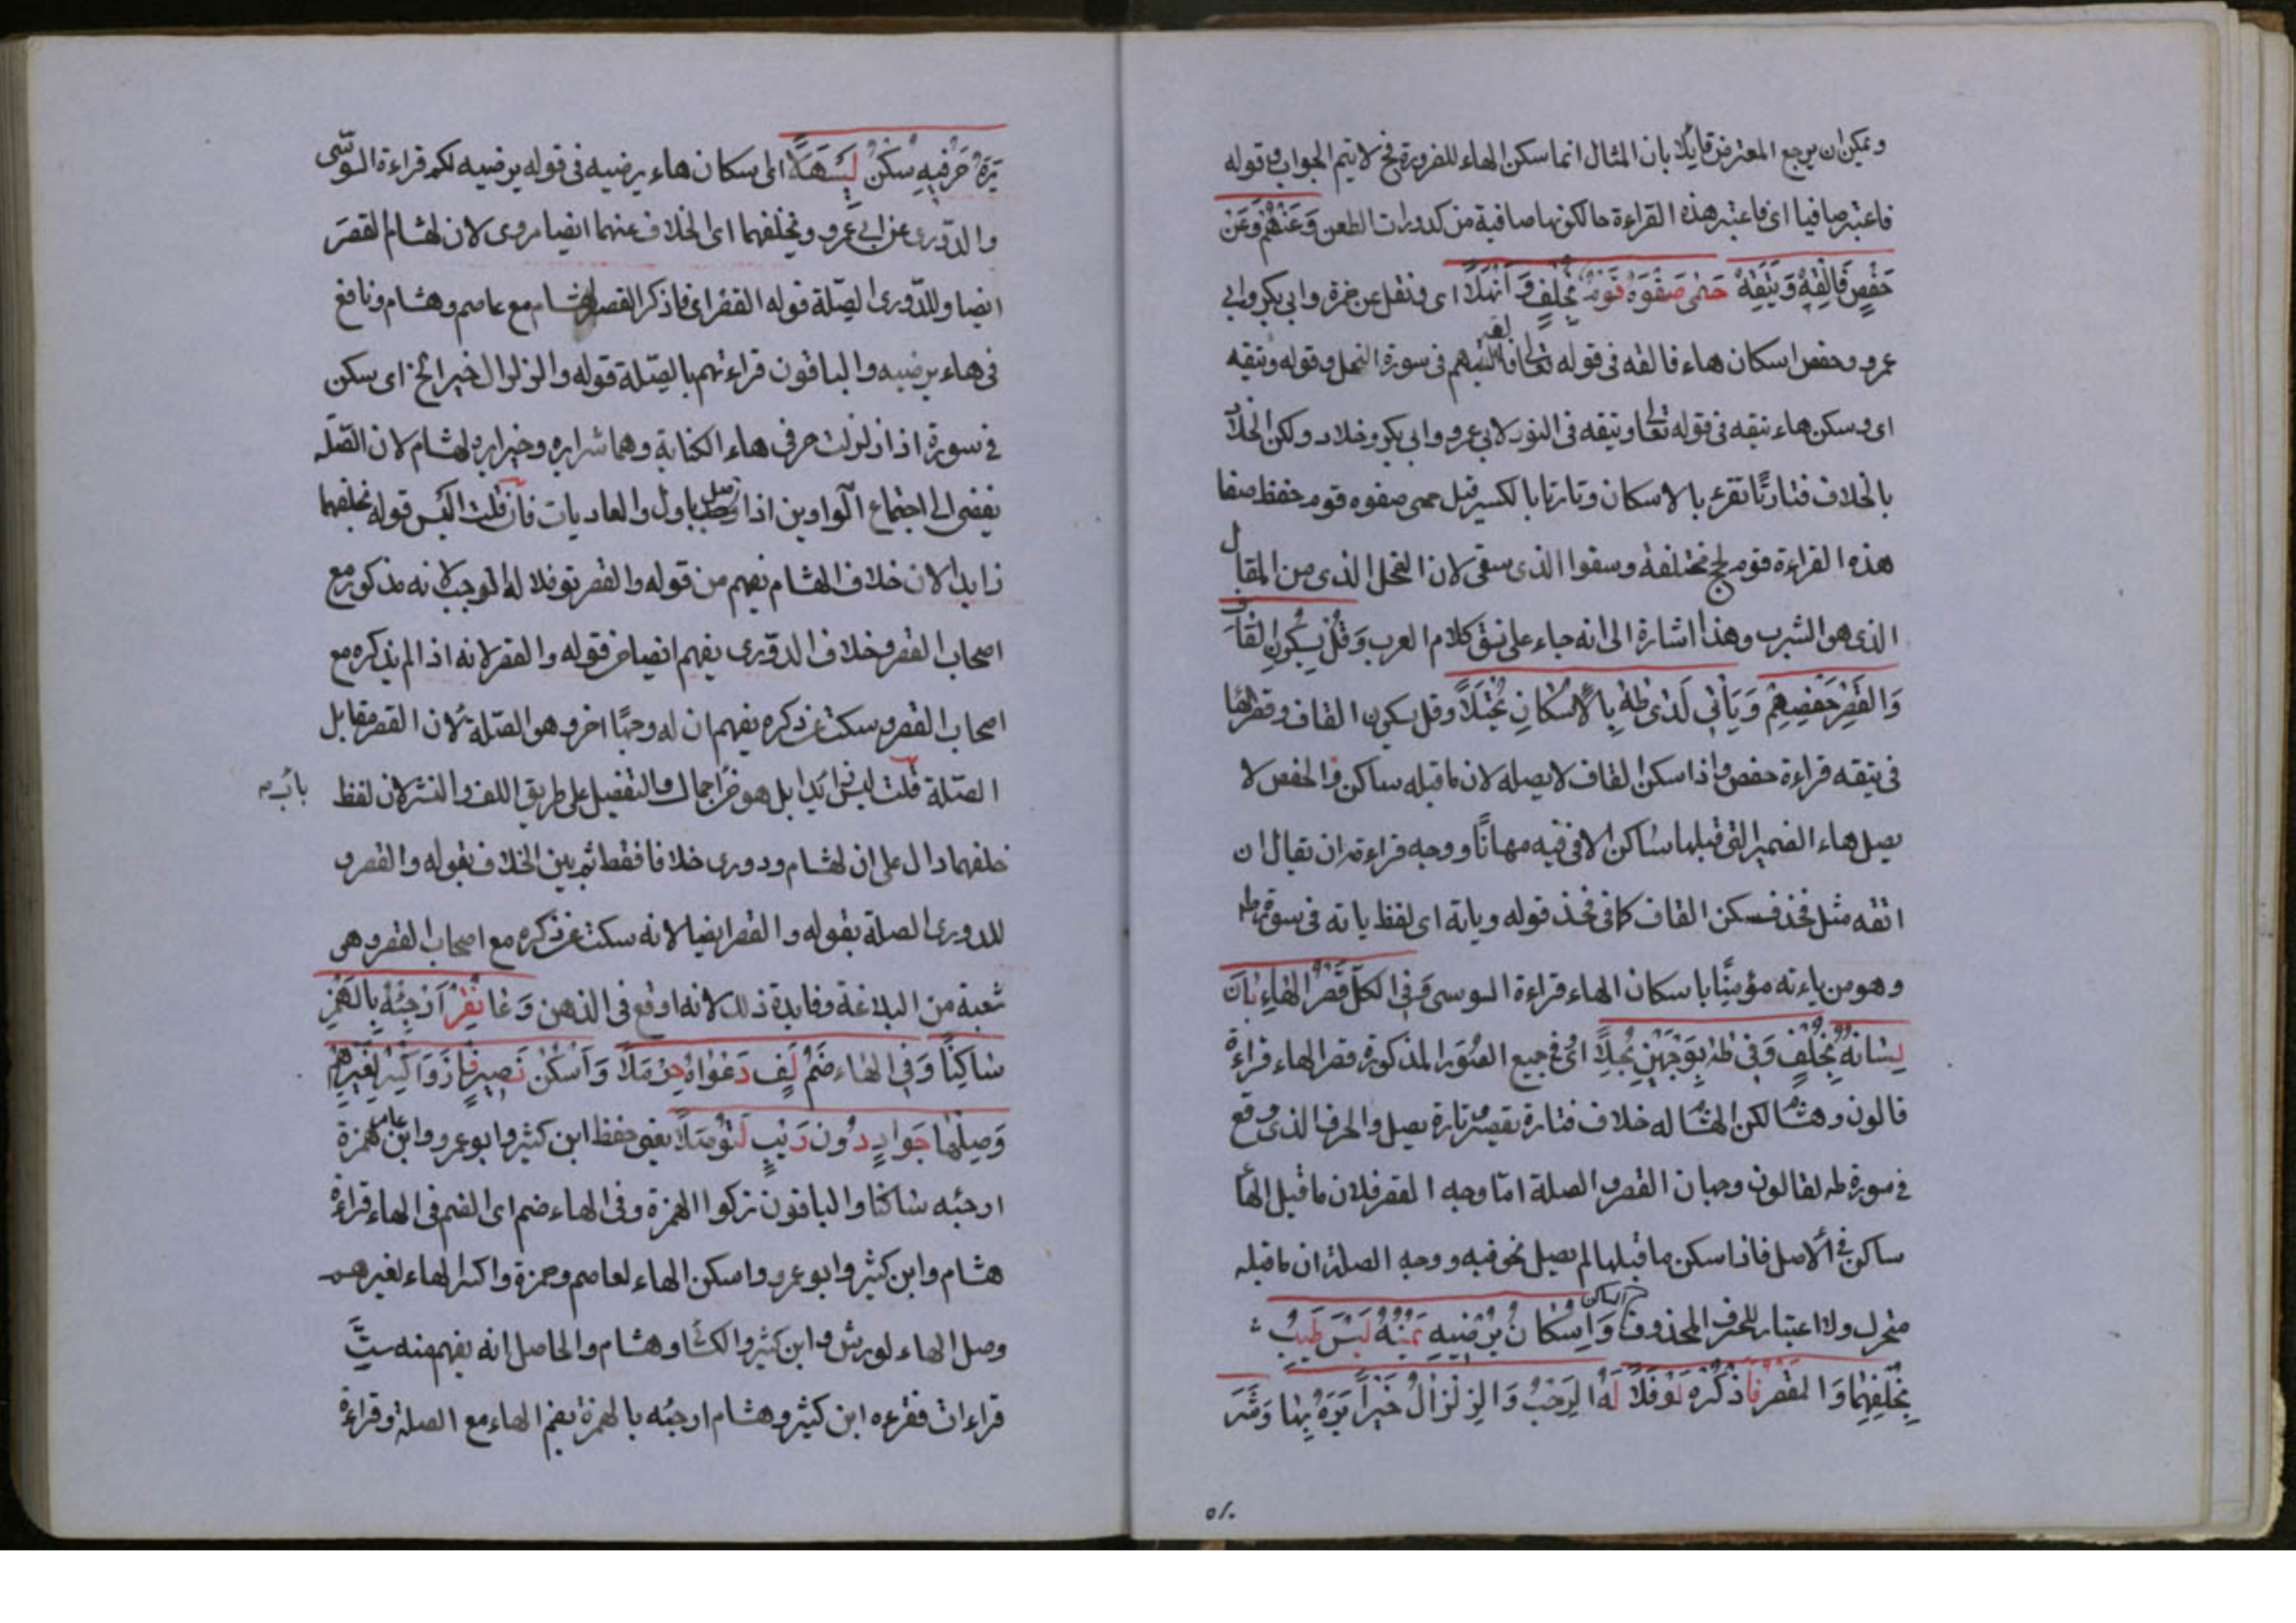 ويمكن ان يرجع المعترض قايلا بان المثال انما سكن الهاء للضرورة فح لا يتم الجواب وقوله
فاعتبر صافيا اى فاعتبر هذه القراءة حالكونها صافية من كدورات الطعن وَعَنْهُمْ وَعَنْ
حَفْصٍ فَأَلْقِهْ وَيَتَّقِهْ حَمٰى صَفْوَهُ قَوْمٌ بِخُلْفٍ وَ أَنْهَلَا اى ونقل عن حمزة وابى بكر وابى
عمرو وحفص اسكان هاء فالقه فى قوله تعا فالقه اليهم فى سورة النمل وقوله ويتقه
اى وسكن هاء يتقه فى قوله تعا ويتقه فى النور لابى عمرو وابى بكر وخلاد ولكن لخلاد
بالخلاف فتارتًا تقرء بالاسكان وتارتا بالكسر قبل حمى صفوه قوم حفظ صفا
هذه القراءة قوم لج مختلفة وسقوا الذى سقى لان النحل الذى من المقابل
الذى هو الشرب وهذا اشارة الى انه جاء على نسق كلام العرب وَقُلْ بِسُكُونِ القَافِ
وَالقَصْرِ حَفْصُهُمْ وَيَأْتِهْ لَدٰى طٰهٰ بِالْاِسْكَانِ يُجْتَلَا وقل بسكون القاف وقصر الها
فى يتقه قراءة حفص واذا سكن القاف لا يصله لان ما قبله ساكن والحفص لا
يصل هاء الضمير التى قبلها ساكن الا فى فيه مهانًا ووجه قراءته ان يقال ان
اتقه مثل فخذ فسكن القاف كما فى فخذ قوله وياته اى لفظ ياته فى سورة طه
وهو من ياءته مؤمنًا باسكان الهاء قراءة السوسى وَفِى الكُلِّ قَصْرُ الهَاءِ بَانَ
لِسَانُهُ بِخُلْفٍ وَفِى طٰهٰ بِوَجْهَيْنِ بُجِّلَا اى فى جميع الصُوَر المذكورة قصر الهاء قراءة
قالون وهشام لكن لهشام له خلاف فتارة يقصر وتارة يصل والحرف الذى وقع
فى سورة طه لقالون وجهان القصر والصلة امّا وجه القصر فلان ما قبل الها
ساكن فى الاصل فاذا سكن ما قبلها لم يصل نحو فيه ووجه الصلة ان ما قبله
متحرك ولا اعتبار للحرف المحذوف وَاِسْكَانُ يَرْضَهْ يُمْنُهُ لُبْسُ طَيِّبٍ
بِخُلْفِهِمَا وَالقَصْرَ فَاذْكُرْهُ نَوْفَلَا لَهُ الرُّحْبُ وَالزِّلْزَالُ خَيْرًا يَرَهْ بِهَا وَشَرًّا
يَرَهْ حَرْفَيْهِ سَكِّنْ لِيَسْهُلَا اى اسكان هاء يرضيه فى قوله يرضيه لكم قراءة السوسى
والدّورى عن ابى عمرو وبخلفهما اى الخلاف عنهما ايضا مروى لان لهشام القصرَ
ايضا وللدّورى الصّلة قوله القصر اى فاذكر القصر لهشام مع عاصم وهشام ونافع
فى هاء يرضيه والباقون قراءتهم بالصّلة قوله والزلزال خيرا الخ اى سكن
فى سورة اذا زلزلت حرفى هاء الكناية وهما شرا يره وخيرا يره لهشام لان الصّلة
يفضى الى اجتماع الواوين اذا وصل باول والعاديات فان قلت اليس قوله بخلفهما
زايدا لان خلاف الهشام يفهم من قوله والقصر نوفلا له الرحب لانه مذكور مع
اصحاب القصر وخلاف الدوّرى يفهم ايضا من قوله والقصر لانه اذا لم يذكره مع
اصحاب القصر وسكت عن ذكره يفهم ان له وجهًا اخر وهو الصّلة لان القصر مقابل
الصّلة قلت ليس زايدا بل هو من اجمال والتفصيل على طريق اللف والنشر لان لفظ
خلفهما دال على ان لهشام ودورى خلافا فقط ثم بين الخلاف بقوله والقصر و
للدورى الصلة بقوله والقصر ايضا لانه سكت عن ذكره مع اصحاب القصر وهى
شعبة من البلاغة وفايدة ذلك لانه اوقع فى الذهن وَعَا نَفَرٌ اَرْجِئْهُ بِالهَمْزِ
سَاكِنًا وَفِى الهَاءِ ضَمٌّ لَفَّ دَعْوَاهُ حَرْمَلَا وَأَسْكِنْ نَصِيرًا فَازَ وَاكْسِرْ لِغَيْرِهِمْ
وَصِلْهَا جَوَادًا دُونَ رَيْبٍ لِتُوصَلَا يعنى حفظ ابن كثير وابو عمرو وابن عامر همزة
ارجئه ساكنا والباقون تركوا الهمزة وفى الهاء ضم اى الضم فى الهاء قراءة
هشام وابن كثير وابو عمرو واسكن الهاء لعاصم وحمزة واكسر الهاء لغيرهم
وصل الهاء لورش وابن كثير والكسا وهشام والحاصل انه يفهم منه ستّ
قراءات فقرءه ابن كثير وهشام ارجئه بالهمزة بضم الهاء مع الصلة وقراءة